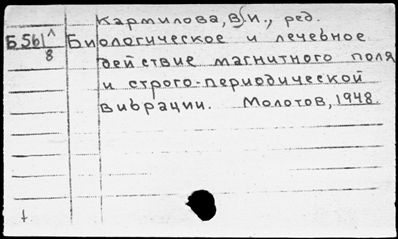 Кармилова, В.И., ред.
Б561^ Биологическое и лечебное
8 действие магнитного поля
и строго-периодической
вибрации. Молотов, 1948.